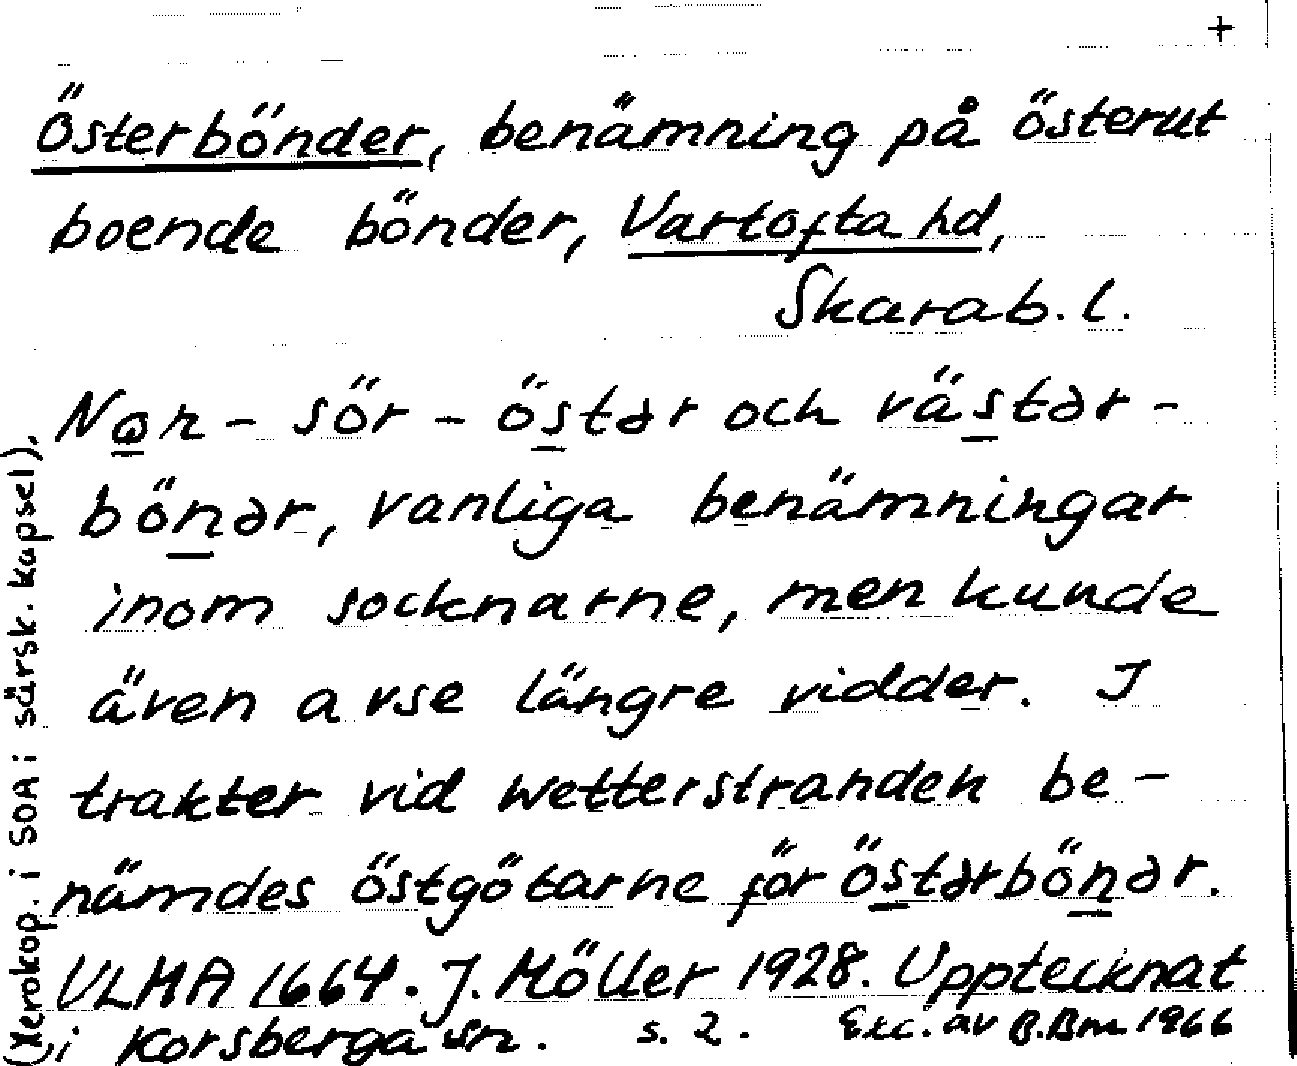 +
Österbönder, benämning på österut
boende bönder, Vartofta hd,
Skarab. l.
Nɷn - sör - östər och västər -
bönər, vanliga benämningar
inom socknarne, men kunde
även avse längre vidder. I
trakter vid Wetterstranden be-
nämdes östgötarne för östərbönər.
ULMA 1664. J. Möller 1928. Upptecknat
i Korsberga sn. s. 2. Exc. av B.Bm 1966
(Xerokop. i SOA i särsk. kapsel).